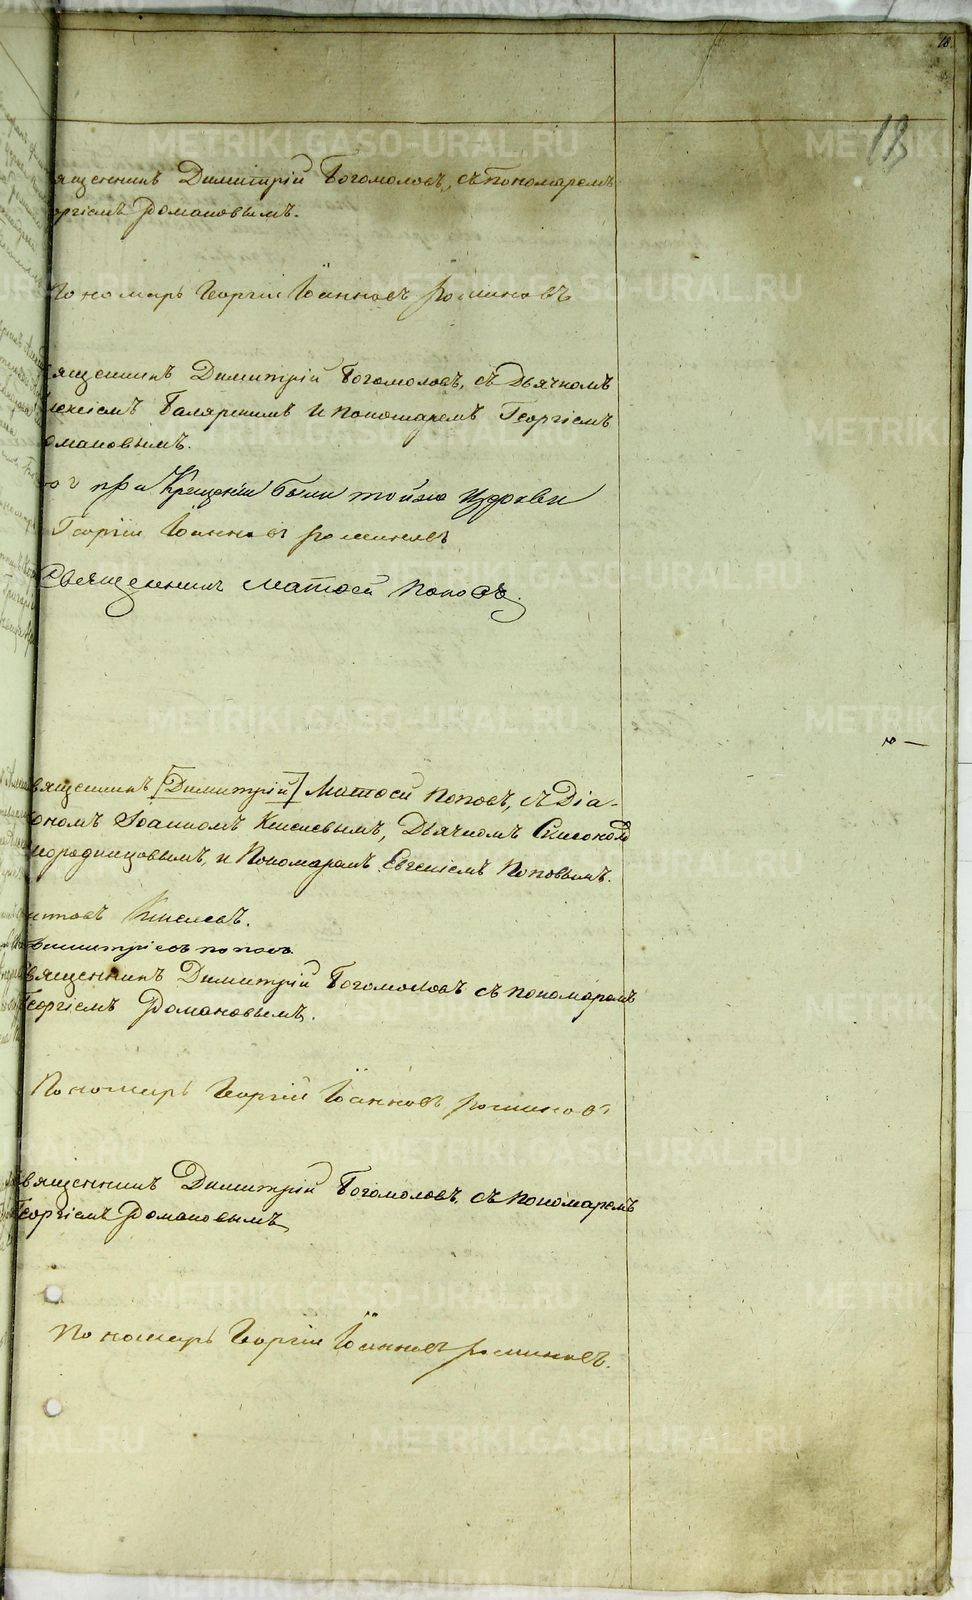 18.
13
METRIKI.GASO-URAL.RU
ященникъ Димитрій Богомоловъ, съ пономаремъ
оргіемъ Романовымъ.
Пономарь Георгій Іоанновъ романовъ
ященникъ Димитрій Богомоловъ, съ дьячкомъ
лексіемъ и пономаремъ Георгіемъ
омановымъ.
при Крещеніи были
Георгій Іоанновъ романовъ
Священникъ Матѳей Поповъ.
ю —
вященникъ [Димитрій] Матѳей Поповъ, с Діа-
кономъ Іоанномъ Киселевымъ, Дьячкомъ
городницовымъ, и Пономаремъ Евгеніемъ Поповымъ.
Киселевъ.
Димитріевъ поповъ
вященникъ Димитрій Богомоловъ съ пономаремъ
Георгіемъ Романовымъ.
Пономарь Георгій Іоанновъ романовъ
вященникъ Димитрій Богомоловъ, съ пономаремъ
Георгіемъ Романовымъ
Пономарь Георгій Іоанновъ романовъ.